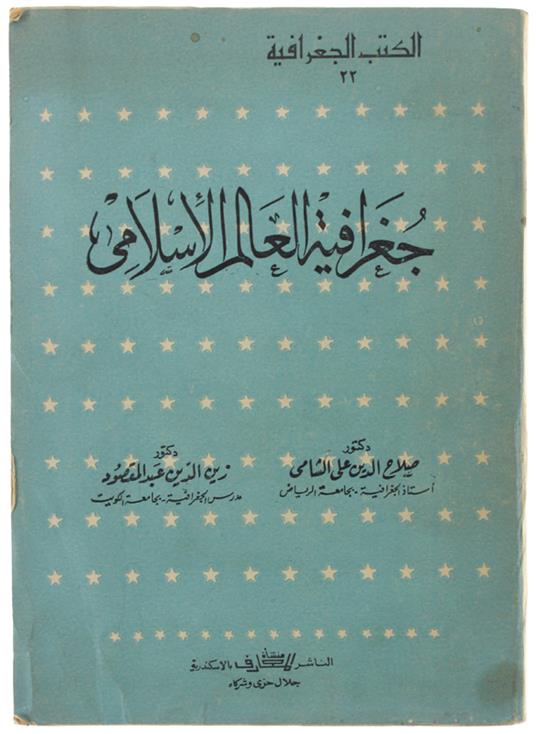 الكتب الجغرافية
٢٢
جُغَرافية العَالم الإسْلامِى
دكتور
صلاح الدين على الشامى
أستاذ الجغرافية - بجامعة الرياض
دكتور
زين الدين عبد المقصود
مدرس الجغرافية - بجامعة الكويت
الناشر منشأة المعارف بالاسكندرية
جلال حزى وشركاه